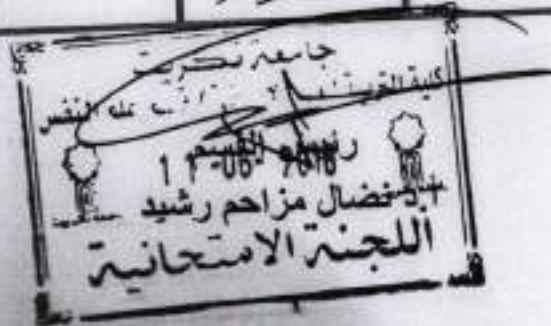 جامعة تكريت
كلية التربية علم النفس
رئيس القسم
نضال مزاحم رشيد
اللجنة الامتحانية